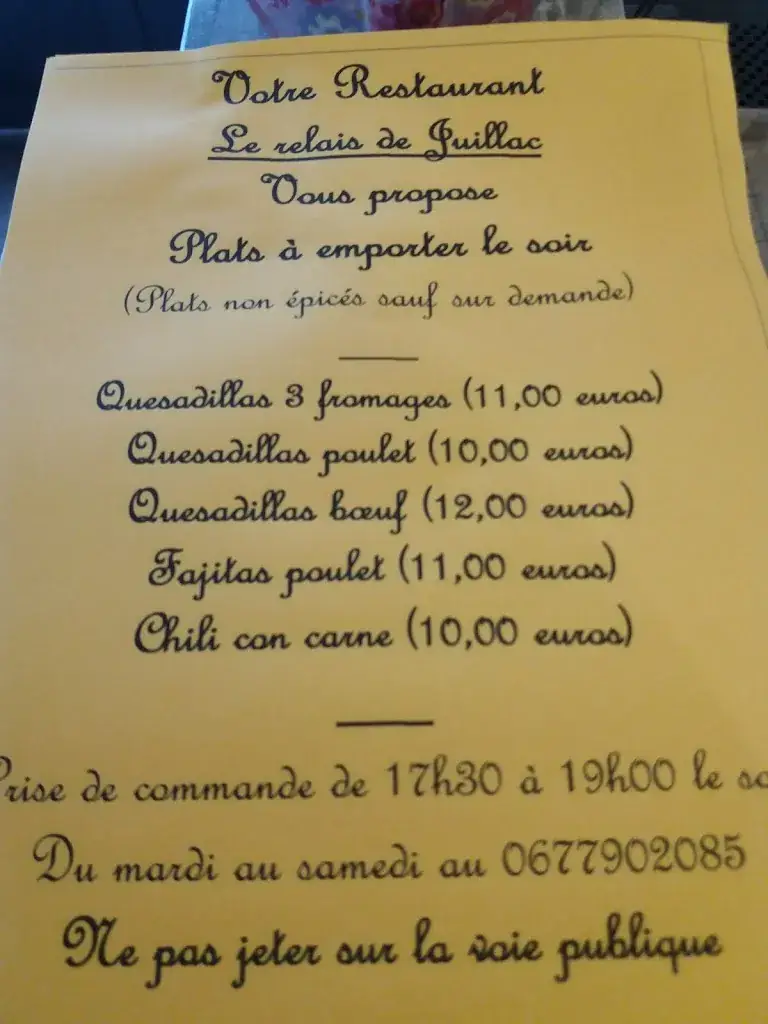 Votre Restaurant
Le relais de Juillac
Vous propose
Plats à emporter le soir
(Plats non épicés sauf sur demande)
Quesadillas 3 fromages (11,00 euros)
Quesadillas poulet (10,00 euros)
Quesadillas bœuf (12,00 euros)
Fajitas poulet (11,00 euros)
Chili con carne (10,00 euros)
Prise de commande de 17h30 à 19h00 le
Du mardi au samedi au 0677902085
Ne pas jeter sur la voie publique